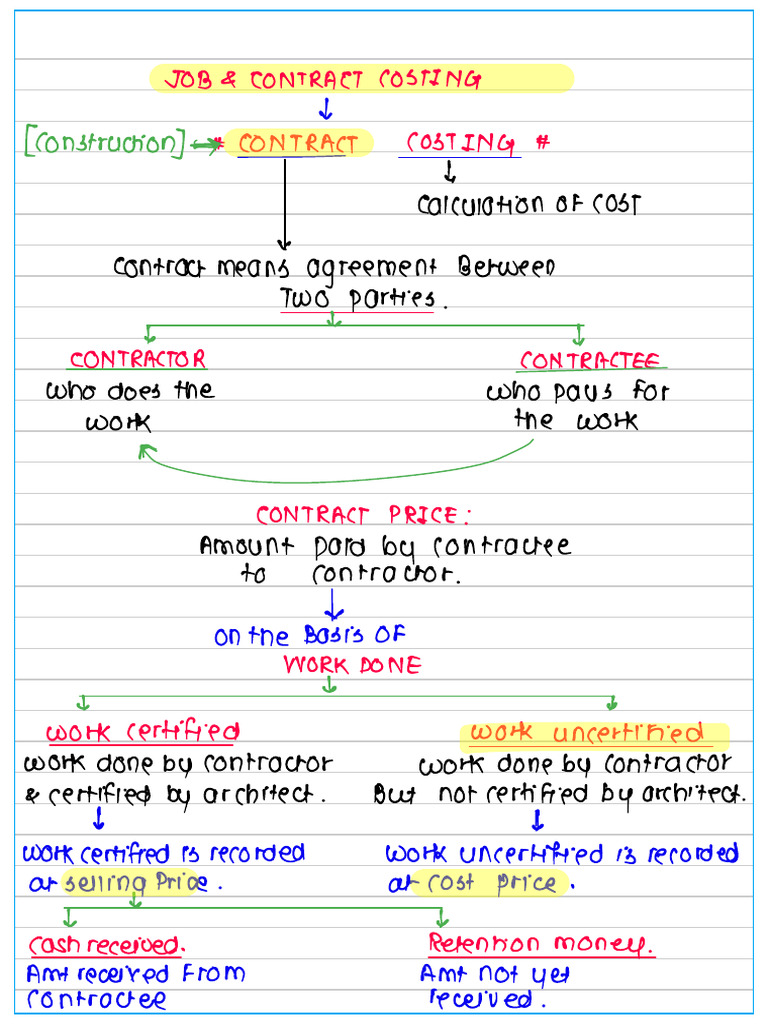 JOB & CONTRACT COSTING
[Construction] # CONTRACT COSTING #
Calculation OF COST
Contract means agreement Between
Two parties.
CONTRACTOR
who does the
work
CONTRACTEE
who pays for
the work
CONTRACT PRICE:
Amount paid by contractee
to contractor.
on the Basis OF
WORK DONE
work certified
work done by contractor
& certified by architect.
work certified is recorded
at selling Price.
work uncertified
work done by contractor
But not certified by architect.
work uncertified is recorded
at cost price.
Cash received.
Amt received From
Contractee
Retention money.
Amt not yet
received.